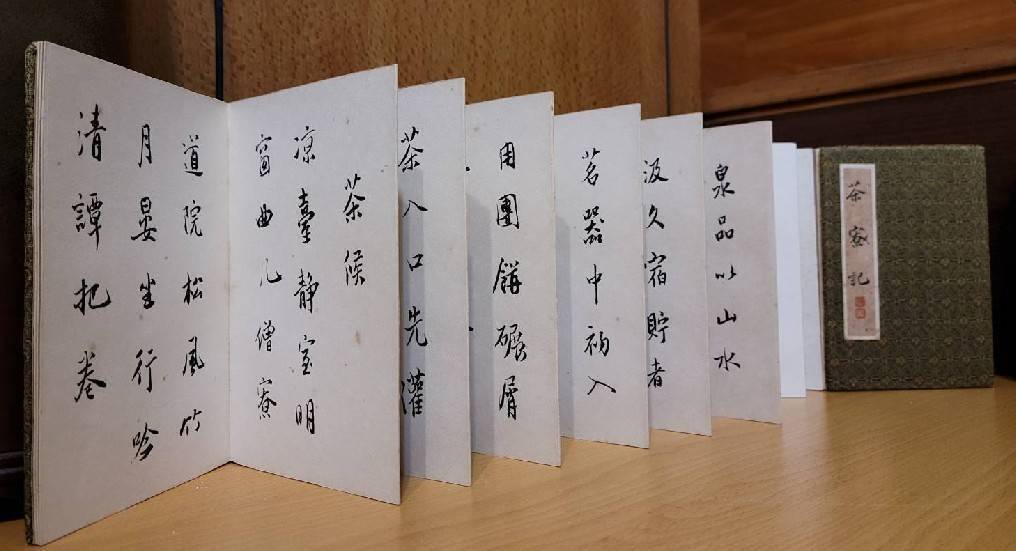 茶寮記
泉品以山水
汲久宿貯者
茗器中初入
用團餅碾屑
茶入口先灌
茶候
涼臺靜室明
窗曲几僧寮
道院松風竹
月晏坐行吟
清譚把卷